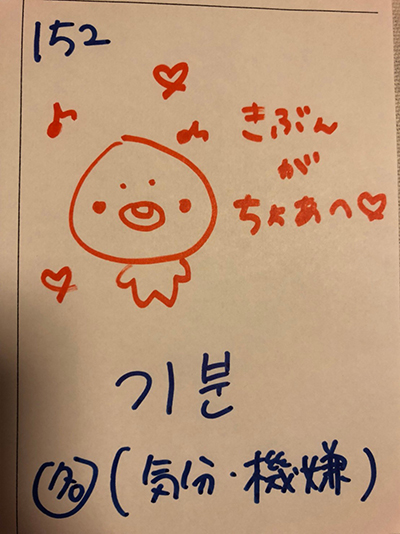 152
きぶん
が
ちょあへ♡
기분
名 (気分・機嫌)